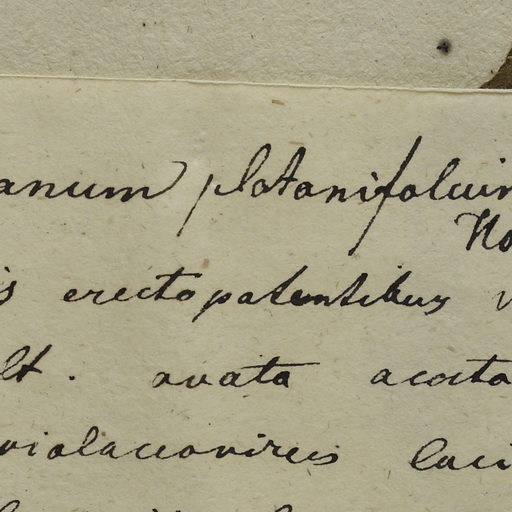 anum platanifolium
No
is erectopatentibus v
lt. ovata acceta
violaceovireis laci